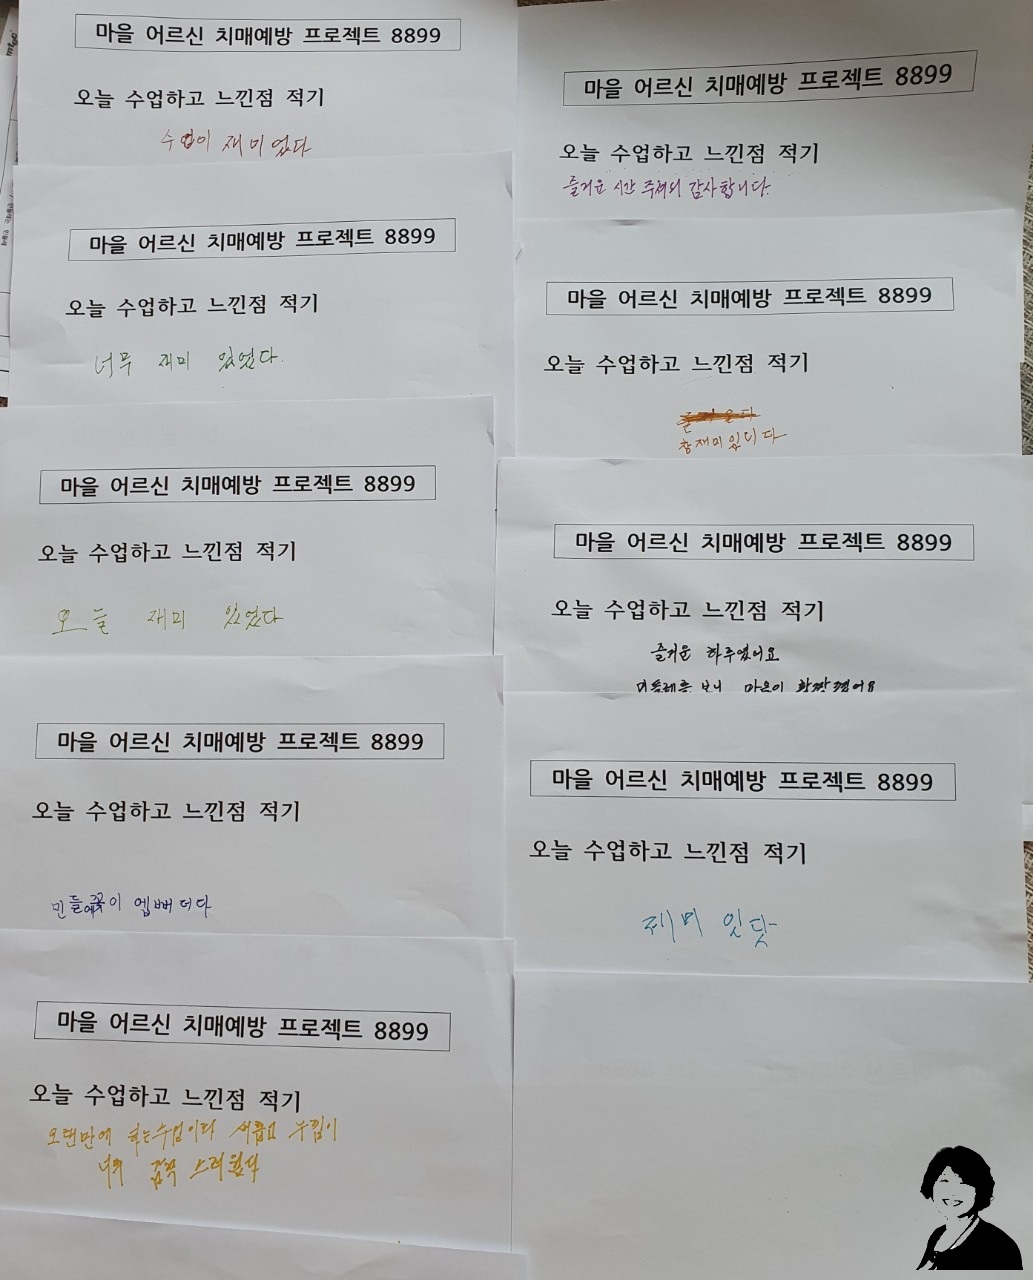 마을 어르신 치매예방 프로젝트 8899
오늘 수업하고 느낀점 적기
수업이 재미 었다
마을 어르신 치매예방 프로젝트 8899
오늘 수업하고 느낀점 적기
너무 재미 있었다.
마을 어르신 치매예방 프로젝트 8899
오늘 수업하고 느낀점 적기
오늘 재미 있었다
마을 어르신 치매예방 프로젝트 8899
오늘 수업하고 느낀점 적기
민들예꽃이 엡뻐더다
마을 어르신 치매예방 프로젝트 8899
오늘 수업하고 느낀점 적기
오랜만에 하는수업이라 새롭고 누낌이
너무 스러웠다
마을 어르신 치매예방 프로젝트 8899
오늘 수업하고 느낀점 적기
즐거운 시간 주셔서 감사합니다.
마을 어르신 치매예방 프로젝트 8899
오늘 수업하고 느낀점 적기
참재미있니다
마을 어르신 치매예방 프로젝트 8899
오늘 수업하고 느낀점 적기
즐거운 하루였어요
민들레를 보니 마음이 활짝 폈어요
마을 어르신 치매예방 프로젝트 8899
오늘 수업하고 느낀점 적기
제미 잇닷